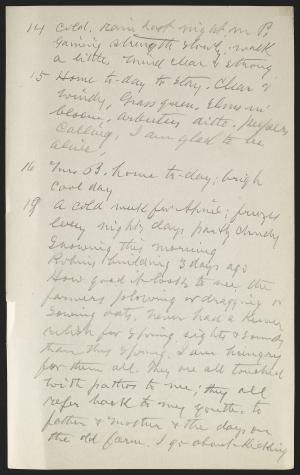 14 Cold, rain last night in P.
Gaining strength slowly, walk
a little, mind clear & strong
15 Home to-day to stay. Clear &
windy, Grass green, Elms in
bloom, arbutus ditto. peepers
calling, I am glad to be
alive.
16 Mrs B. home to-day; bright
cool day
19 A cold week for April; freezes
every night, days partly cloudy
Snowing this morning
Robins building 3 days ago
How good it looks to see the
farmers plowing or dragging or
sowing oats. Never had a keener
relish for Spring sights & sounds
than this Spring. I am hungry
for them all. They are all touched
with pathos to me; they all
refer back to my youth, to
father & mother & the days on
the old farm. I go about kicking